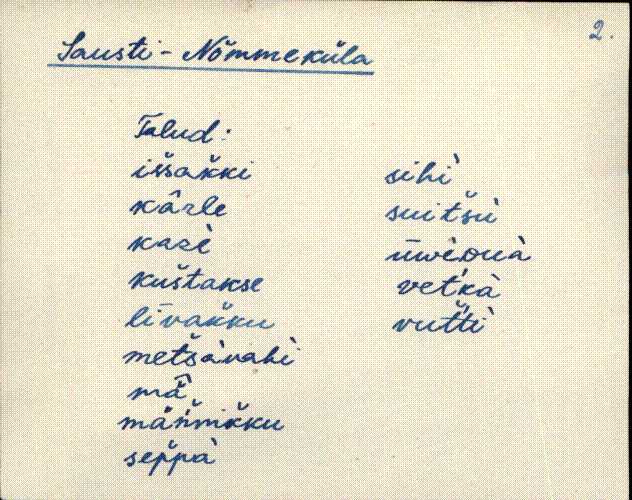 2.
Sausti - Nõmmeküla
Talud:
iššak̆ki
kârle
kasè
kuštakse
līvak̆ku
metšàvahì
mä̂
män̆nik̆ku
sep̆pà
sihì
suit̆sù
ūwèǫuà
vet̆kà
vut̆tì